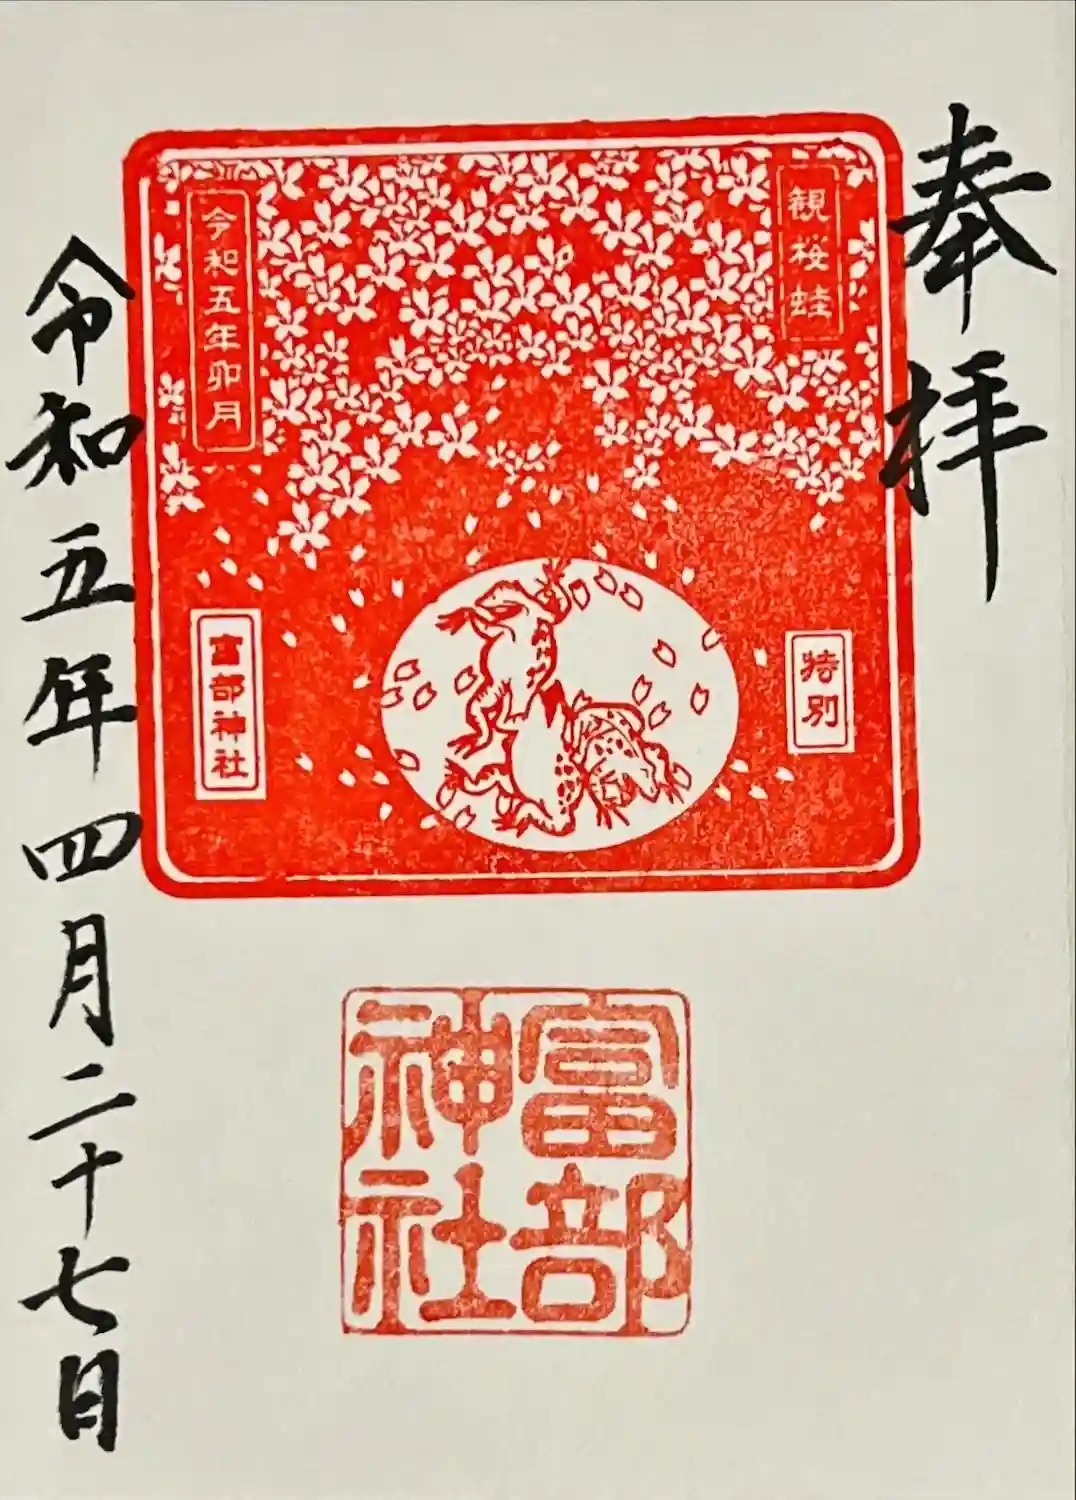 奉拝
観桜蛙
特別
令和五年卯月
富部神社
富部
神社
令和五年四月二十七日